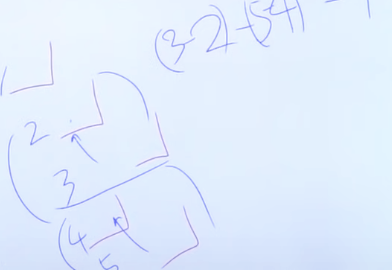 (3-2)-(54)
2
3
(4
5